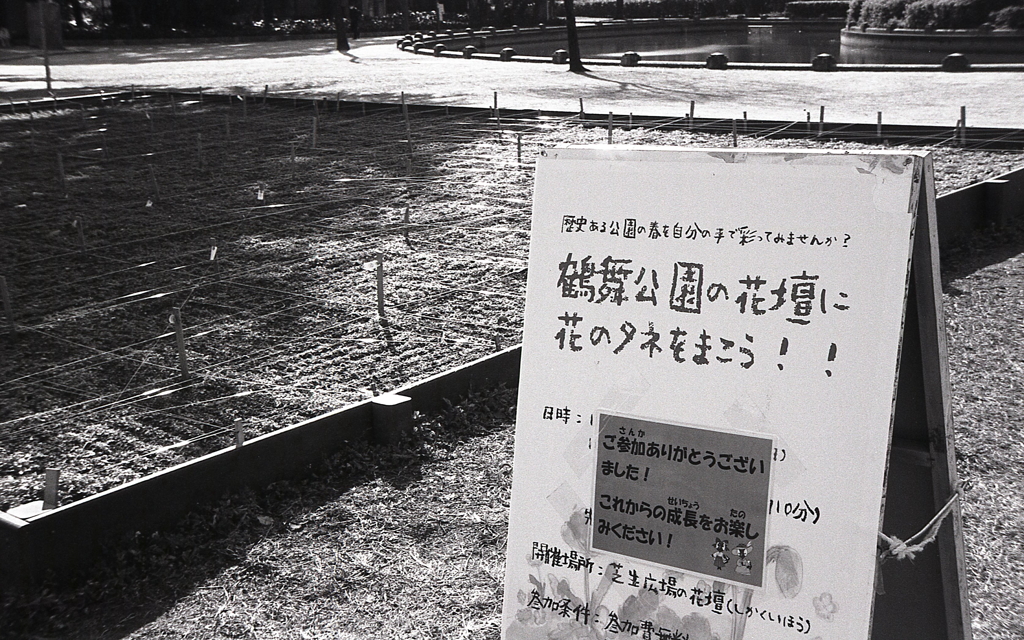 歴史ある公園の春を自分の手で彩ってみませんか?
鶴舞公園の花壇に
花のタネをまこう!!
日時:
さんか
ご参加ありがとうござい
ました!
せいちょう たの
これからの成長をお楽し
みください!
10分)
開催場所:芝生広場の花壇(しかくいほう)
参加条件:参加費無料